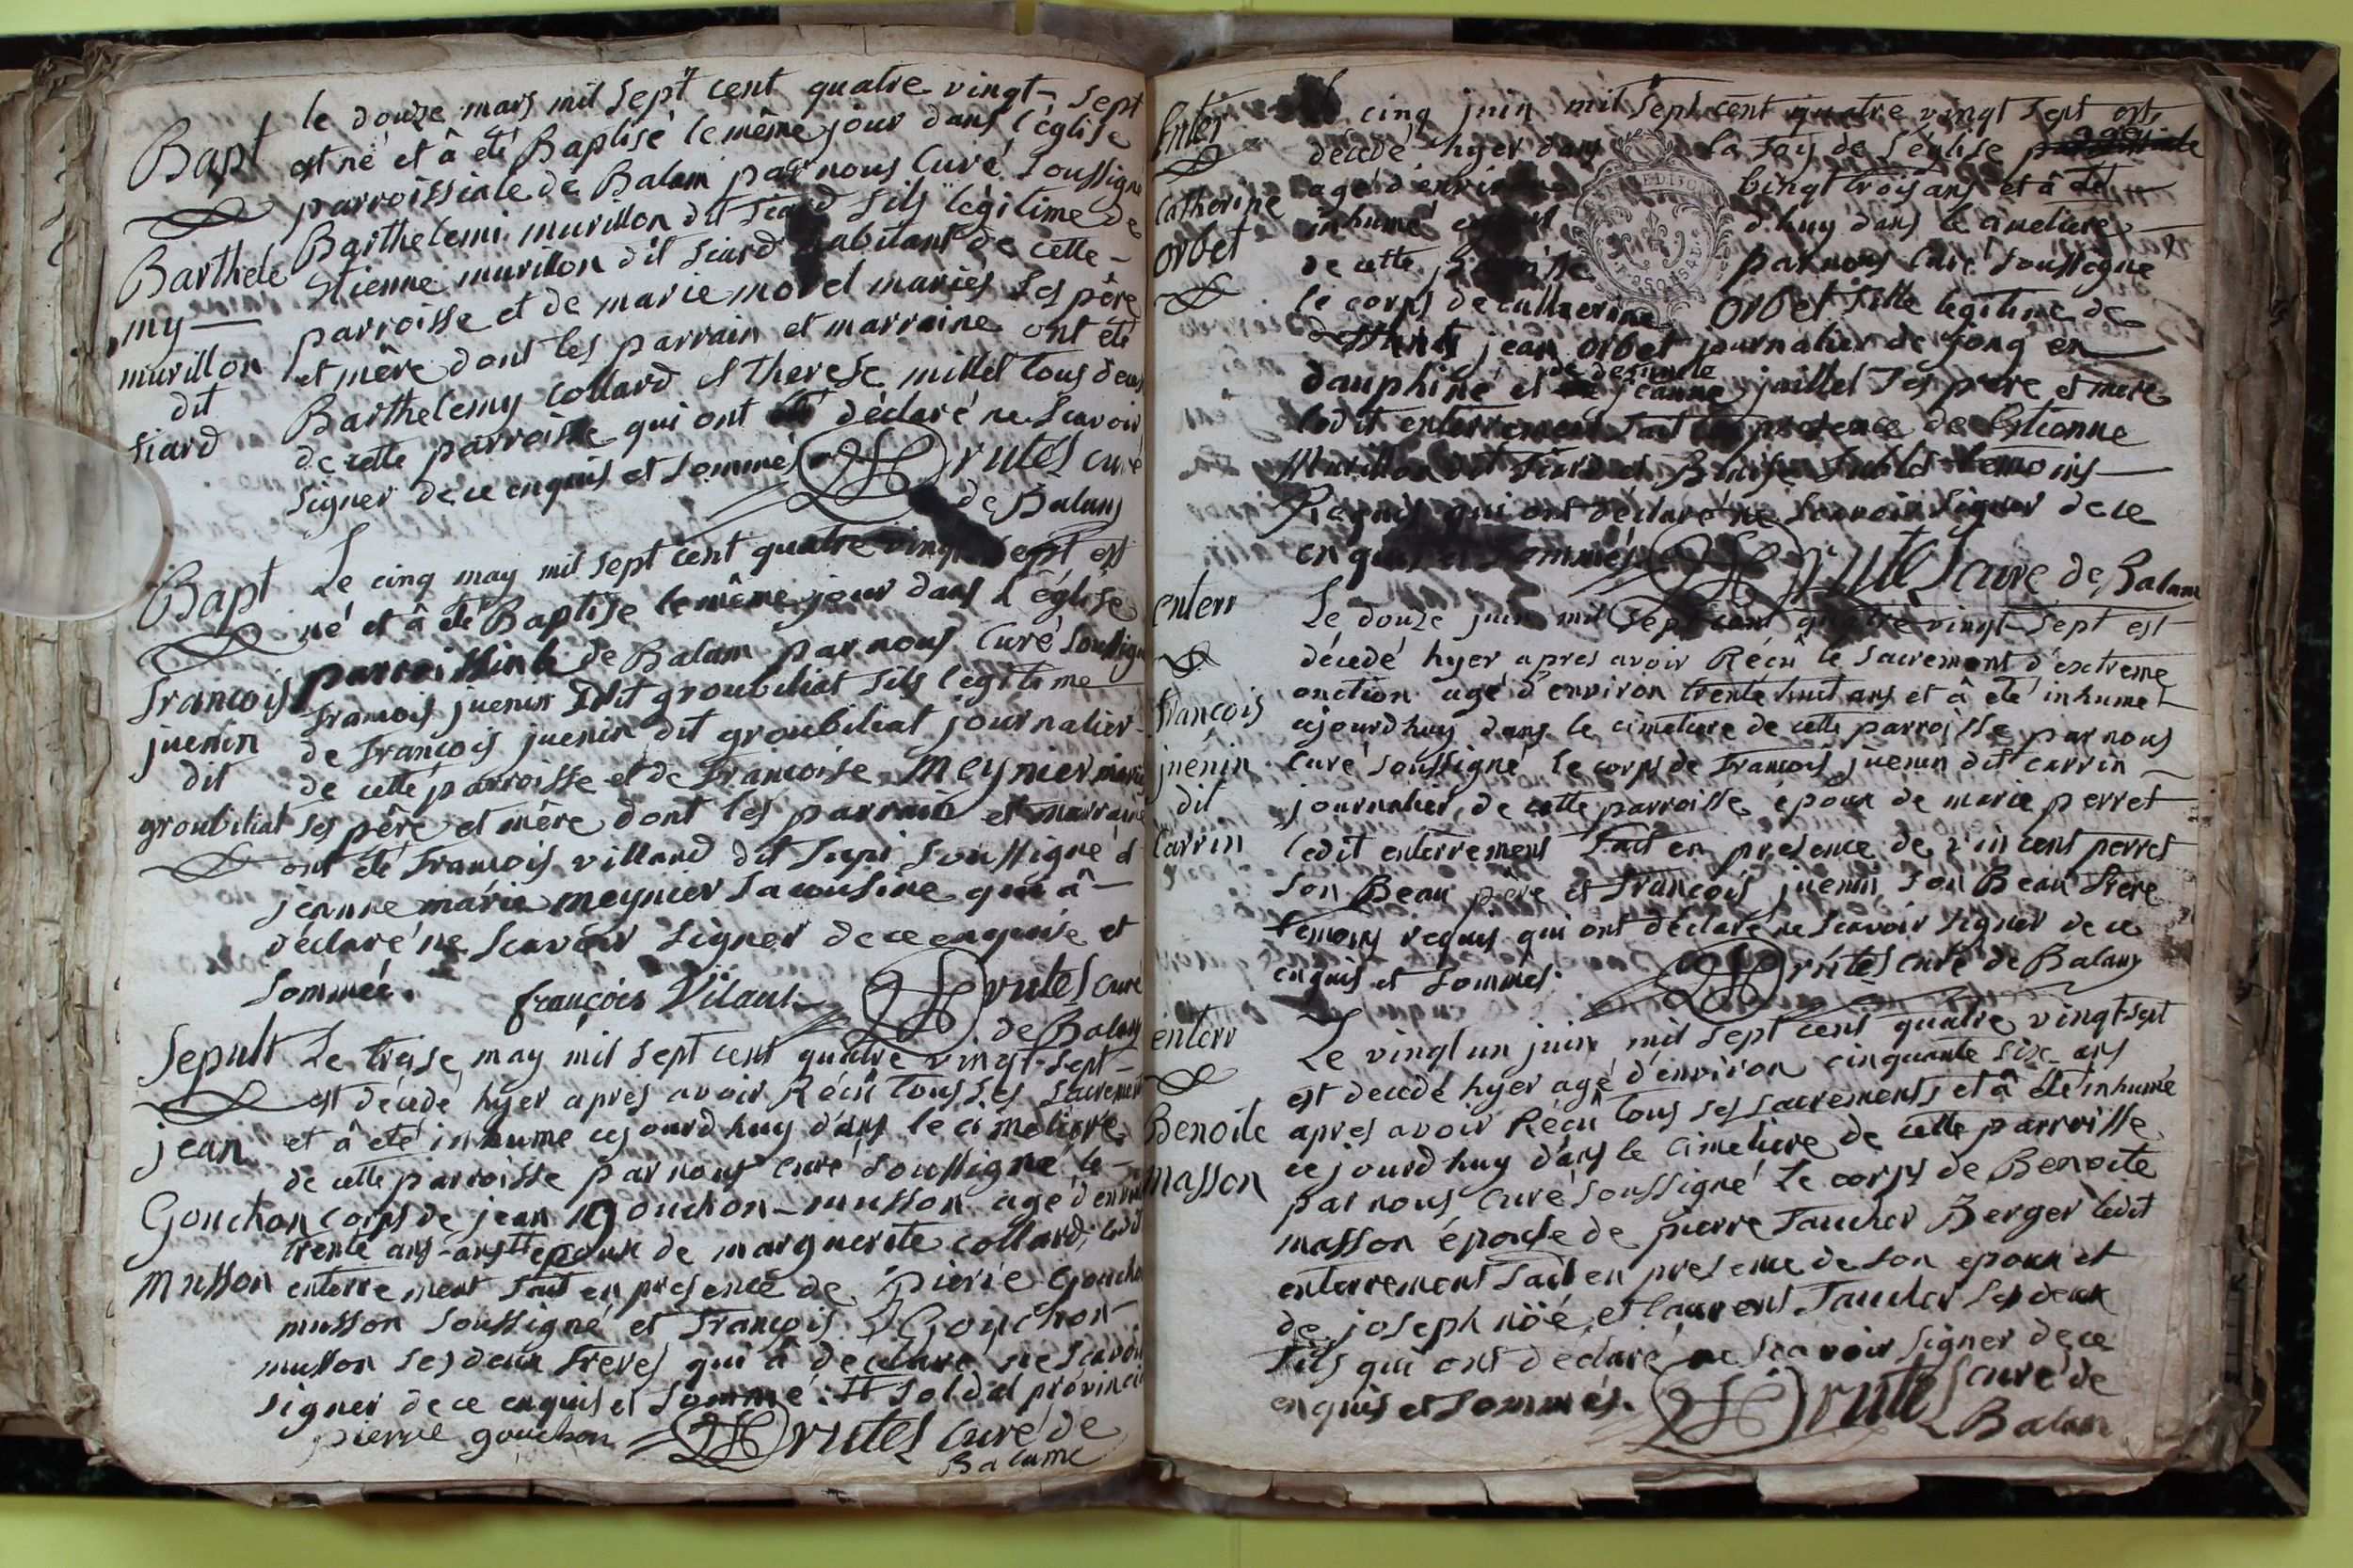 Bapt
Barthele
my
murillon
dit
siard
le douze mars mil sept cent quatre vingt sept
est né et â été Baptisé le même jour dans l'église
parroissiale de Balam par nous Curé soussigné
Barthelemi murillon dit siard fils légitime de
Etienne murillon dit siard habitant de cette
parroisse et de marie morel mariés ses père
et mère dont les parrain et marraine ont été
Barthelemy Collard et therese millet tous deux
de cette parroisse qui ont déclaré ne scavoir
signer de ce enquis et sommés Drutel curé
de Balam
Bapt
françois
juenin
dit
groubiliat
Le cinq may mil sept cent quatre vingt sept est
né et â été Baptisé le même jour dans l'église
parroissiale de Balam par nous Curé soussigné
françois juenin dit groubiliat fils légitime
de françois juenin dit groubiliat journalier
de cette parroisse et de françoise Meynier mariés
ses père et mère dont les parrain et marraine
ont été françois villand dit soussigné et
jeanne marie meynier sa cousine qui â
déclaré ne scavoir signer de ce enquise et
sommée. françois Vilaut Drutel curé
de Balam
Sepult
jean
Gouchon
musson
Le treise may mil sept cent quatre vingt-sept
est décédé hyer apres avoir Récû tous ses sacrements
et â été inhumé cejourd huy dans le cimetierre
de cette parroisse par nous curé soussigné le
corps de jean gouchon-musson agé d'environ
trente ans epoux de marguerite collard, ledit
enterrement fait en presence de pierre Gouchon
musson soussigné et françois Gouchon
musson ses deux freres qui â déclaré ne scavoir
signer de ce enquis et sommé. # soldat provincial
pierre gouchon Drutel Curé de
Balame
Enter
Catherine
orbet
cinq juin mil sept cent quatre vingt sept est
decedé hyer dans la foy de l'église
agé d'environ vingt trois ans et â été
inhumé d'huy dans le cimetiere
de cette par nous Curé soussigné
le corps de catherine orbet fille legitime de
jean orbet journalier de jong en
dauphiné et de defunte jeanne juillet ses pere et mere
ledit enterrement fait en presence de Etienne
Murillon dit siard et Blaise temoins
Requis qui ont déclaré ne scavoir signer de ce
enquis et sommés Drutel curé de Balam
enterr
françois
juenin
dit
Carrin
Le douze juin mil sept cent quatre vingt sept est
décedé hyer apres avoir Récû le sacrement d'extreme
onction agé d'environ trente huit ans et â été inhumé
cejourdhuy dans le cimetiere de cette parroisse par nous
Curé soussigné le corps de françois juenin dit carrin
journalier de cette parroisse époux de marie perret
ledit enterrement fait en presence de vincent perret
son Beau père et françois juenin son Beau frere
temoins requis qui ont déclaré ne scavoir signer de ce
enquis et sommés. Drutel curé de Balam
enterr
Benoite
masson
Le vingt un juin mil sept cent quatre vingt-sept
est decedé hyer agé d'environ cinquante six ans
apres avoir Récû tous ses sacrements et â été inhumé
cejourd huy dans le cimetiere de cette parroisse
par nous Curé soussigné le corps de Benoite
masson épouse de pierre faucher Berger ledit
enterrement fait en presence de son epoux et
de joseph nöé et laurent faucher ses deux
fils qui ont déclaré ne scavoir signer de ce
enquis et sommés. Drutel Curé de
Balam